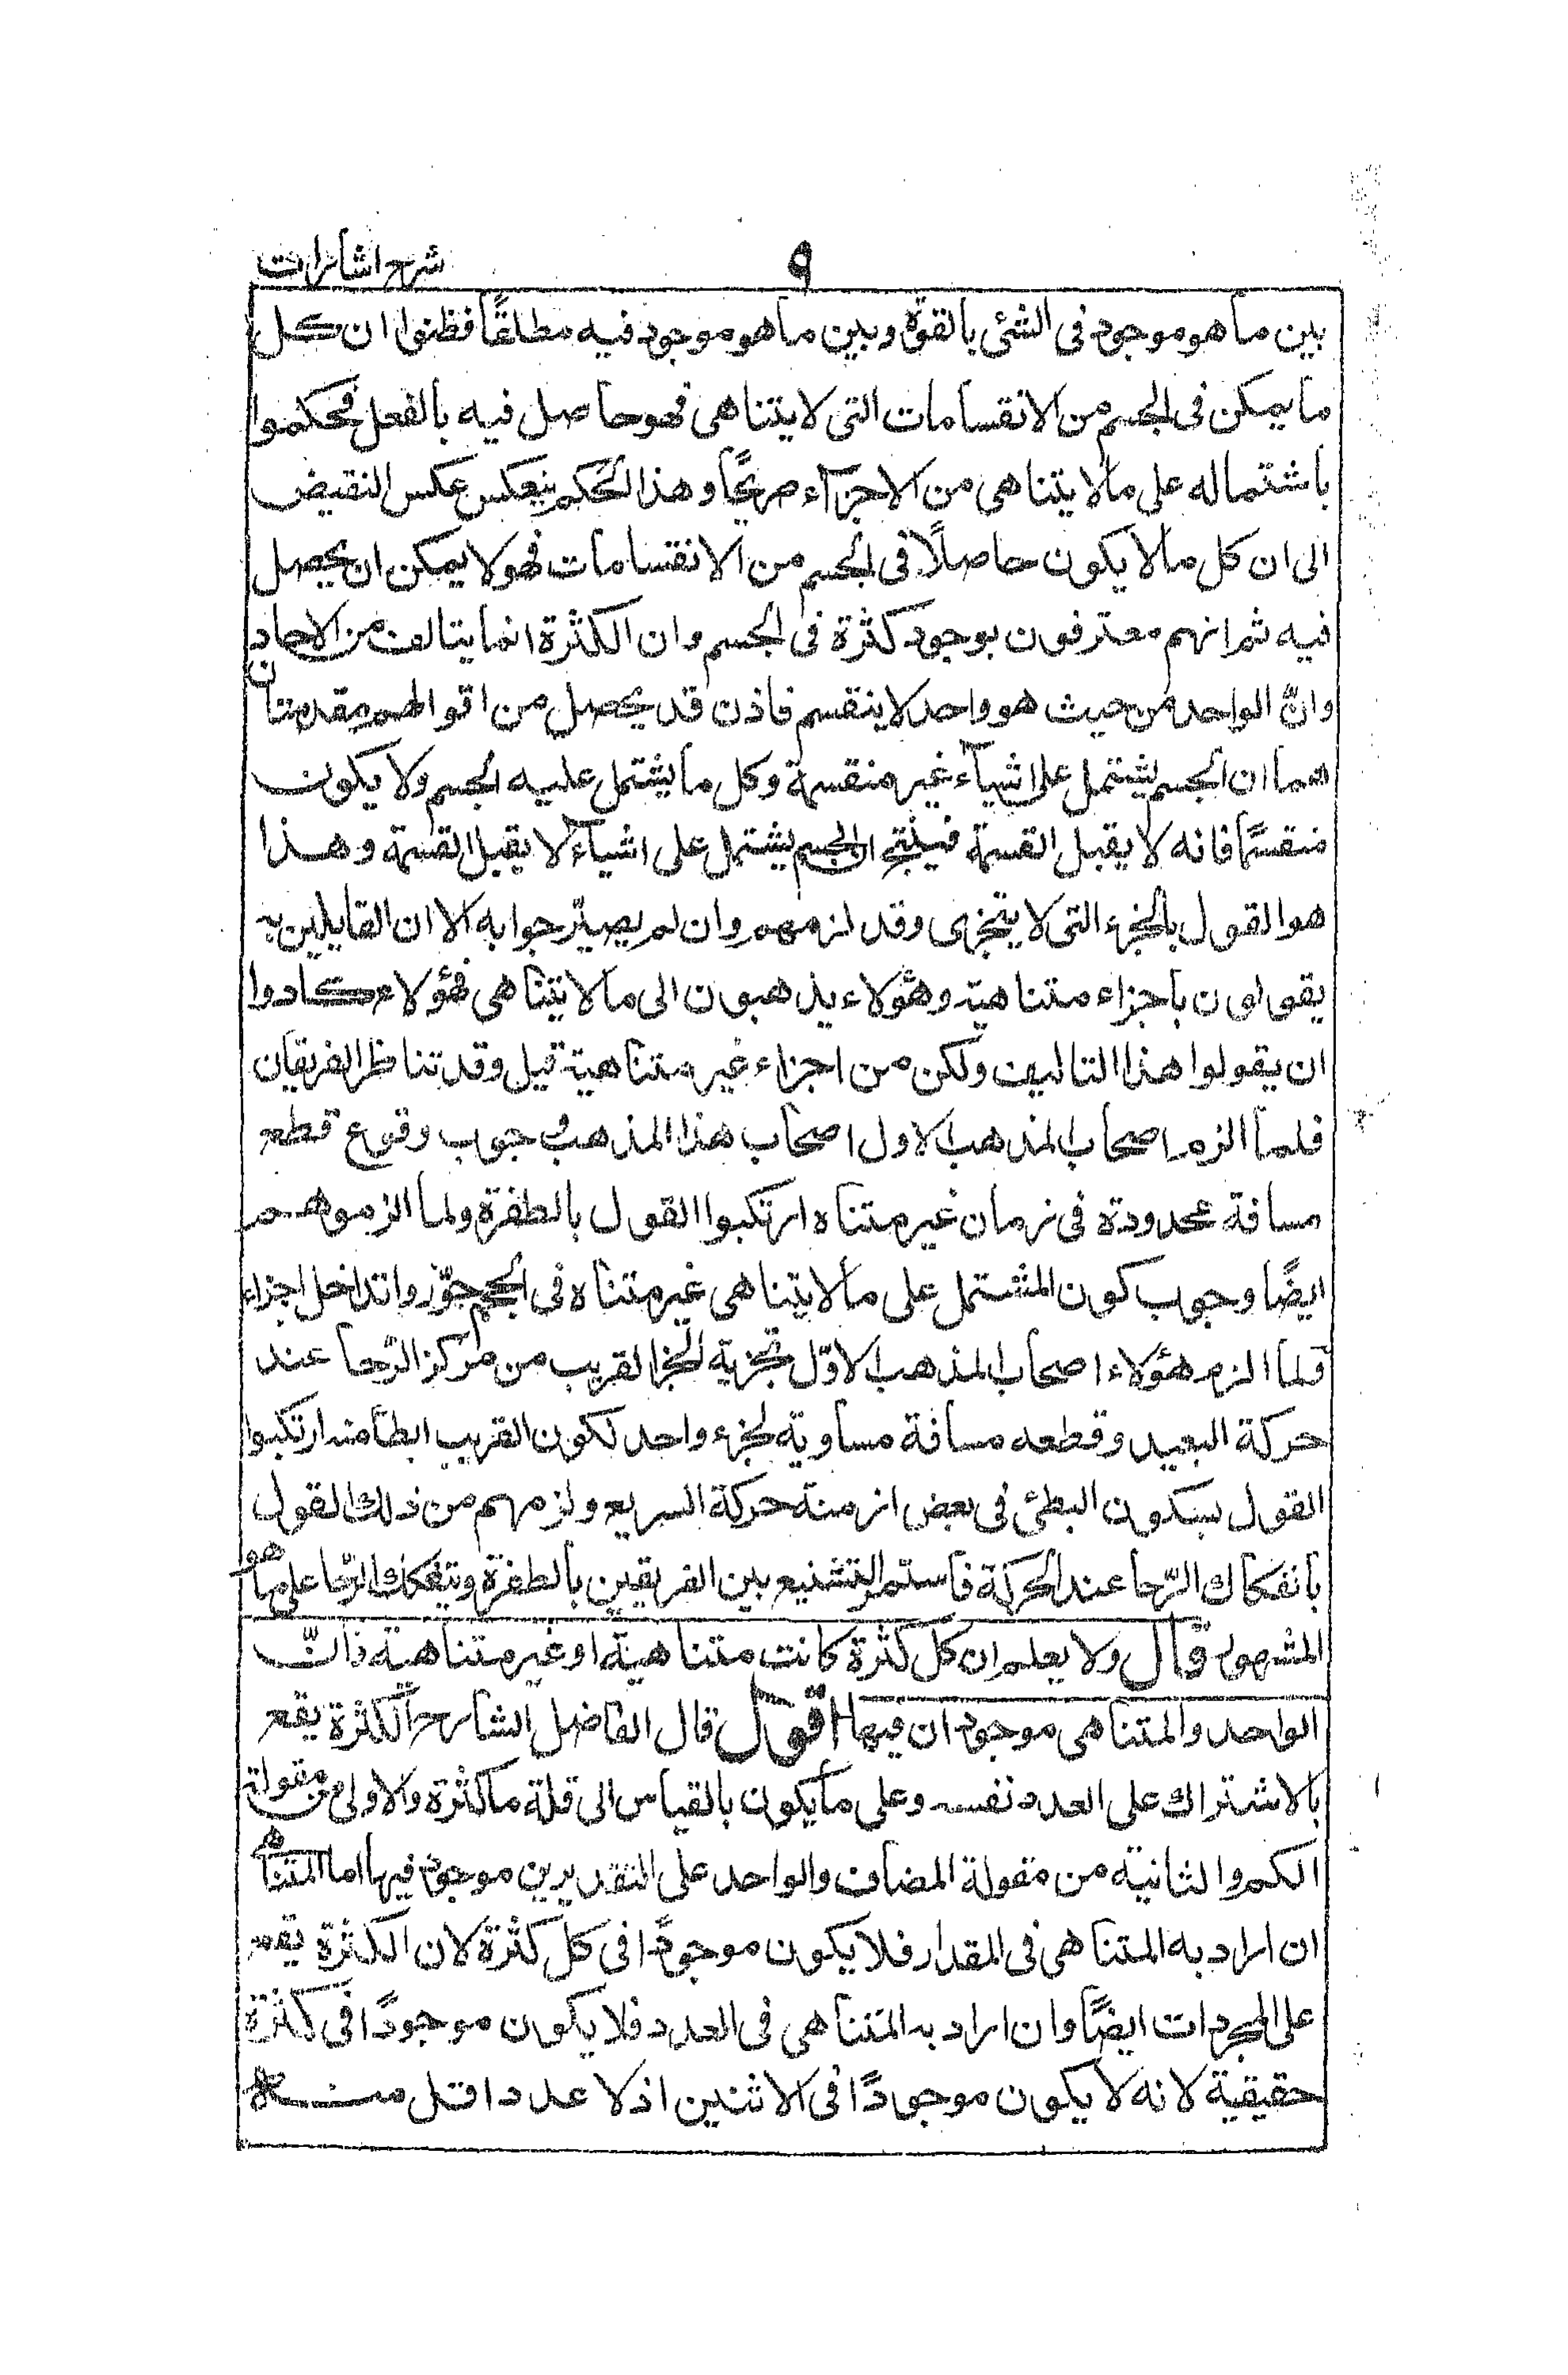 ٩ شرح اشارات
بين ما هو موجود فى الشئ بالقوة وبين ما هو موجود فيه مطلقًا فظنوا ان كل
ما يمكن فى الجسم من الانقسامات التى لا يتناهى فهو حاصل فيه بالفعل فحكموا
باشتماله على ما لا يتناهى من الاجزآء صريحًا وهذا الحكم ينعكس عكس النقيض
الى ان كل ما لا يكون حاصلًا فى الجسم من الانقسامات فهو لا يمكن ان يحصل
فيه ثم انهم معترفون بوجود كثرة فى الجسم وان الكثرة انما يتالف من الاحاد
وانّ الواحد من حيث هو واحد لا ينقسم فاذن قد يحصل من اقوالهم مقدمتان
هما ان الجسم يشتمل على اشيآء غير منقسمة وكل ما يشتمل عليه الجسم ولا يكون
منقسمًا فانه لا يقبل القسمة فينتج ان الجسم يشتمل على اشيآء لا يقبل القسمة وهذا
هو القول بالجزء التى لا يتجزى وقد لزمهم وان لم يصيّرحوا به الا ان القايلين به
يقولون باجزاء متناهية وهؤلاء يذهبون الى ما لا يتناهى فهؤلاء كادوا
ان يقولوا هذا التاليف ولكن من اجزاء غير متناهية قيل وقد تناظر الفريقان
فلما الزم اصحاب المذهب الاول اصحاب هذا المذهب وجوب وقوع قطع
مسافة محدودة فى زمان غير متناه ارتكبوا القول بالطفرة ولما الزموهم
ايضًا وجوب كون المشتمل على ما لا يتناهى غير متناه فى الحجم جوّزوا تداخل اجزاء
فلما الزم هؤلاء اصحاب المذهب الاوّل تجزية الجز القريب من مركز الرّحا عند
حركة البعيد وقطعه مسافة مساوية لجزء واحد لكون القريب ابطأ منه ارتكبوا
القول بسكون البطئ فى بعض ازمنة حركة السريع ولزمهم من ذلك القول
بانفكاك الرّحا عند الحركة فاستمر التشنيع بين الفريقين بالطفرة وبتفكك الرّحا على ما هو
المشهور قال ولا يعلم ان كل كثرة كانت متناهية او غير متناهية فانّ
الواحد والمتناهى موجودان فيها اقول قال الفاضل الشارح الكثرة يقع
بالاشتراك على العدد نفسه وعلى ما يكون بالقياس الى قلة ما كثرة والاولى من مقولة
الكم والثانية من مقولة المضاف والواحد على التقديرين موجود فيها اما المتناهى
ان اراد به المتناهى فى المقدار فلا يكون موجودًا فى كل كثرة لان الكثرة يقع
على المجردات ايضًا وان اراد به المتناهى فى العدد فلا يكون موجودًا فى كثرة
حقيقية لانه لا يكون موجودًا فى الاثنين اذ لا عددا قل منه